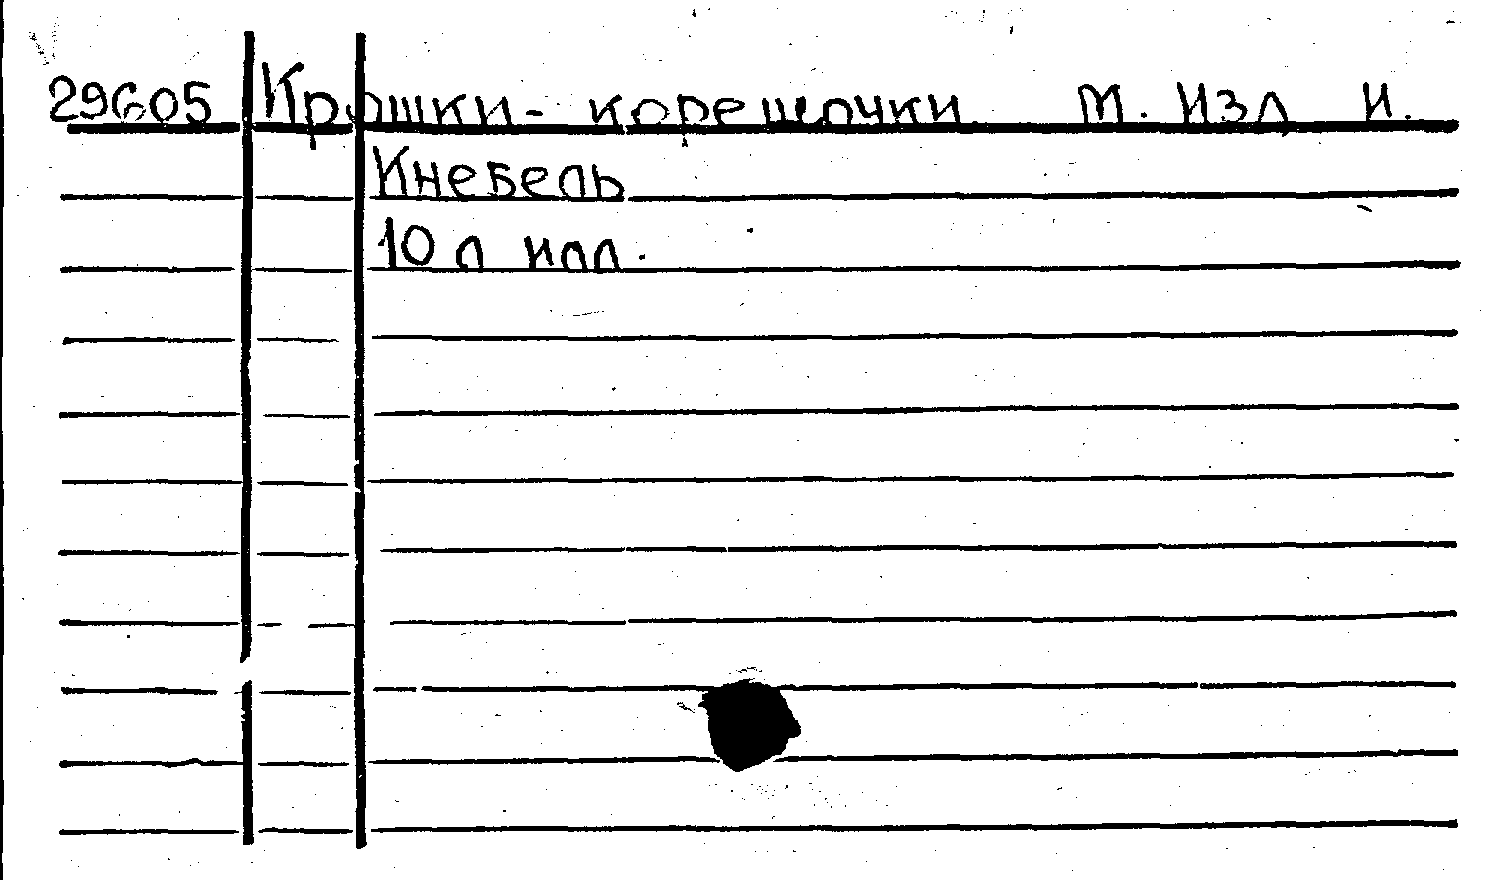 29605 Крошки- корешочки. М. Изд И.
Кнебель
10 л илл.